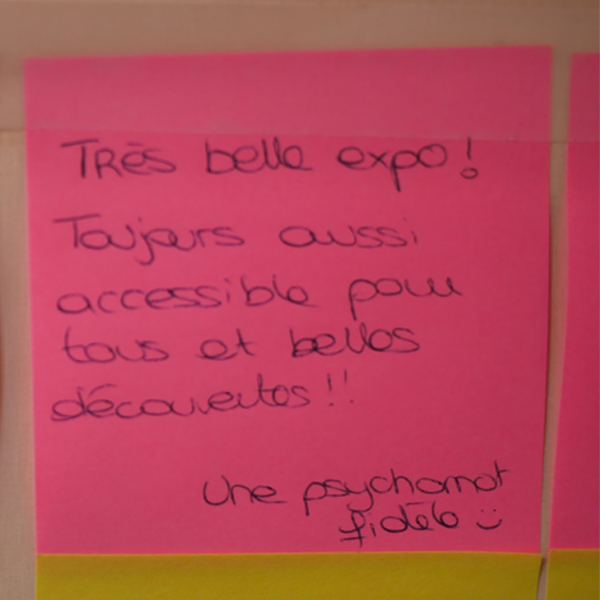 Très belle expo !
Toujours aussi
accessible pour
tous et belles
découvertes !!
Une psychomot
fidèle